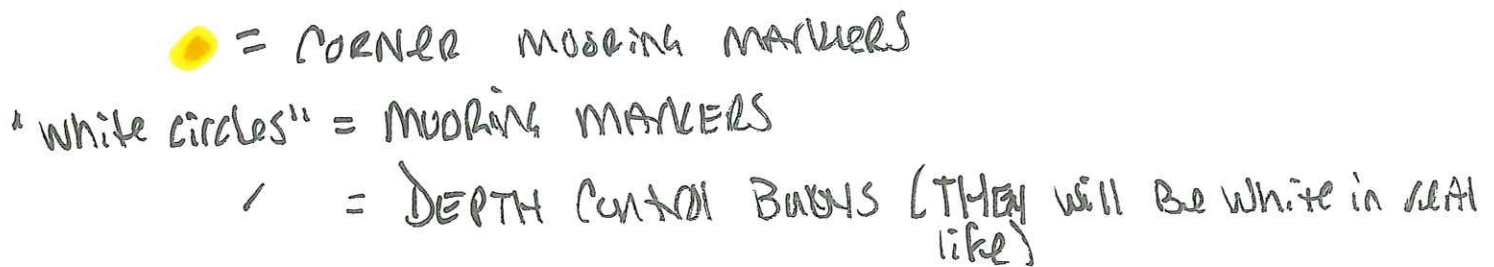 = CORNER MOORING MARKERS
"White circles" = MOORING MARKERS
/ = DEPTH CONTROL BUOYS (THEY will Be white in real
life)